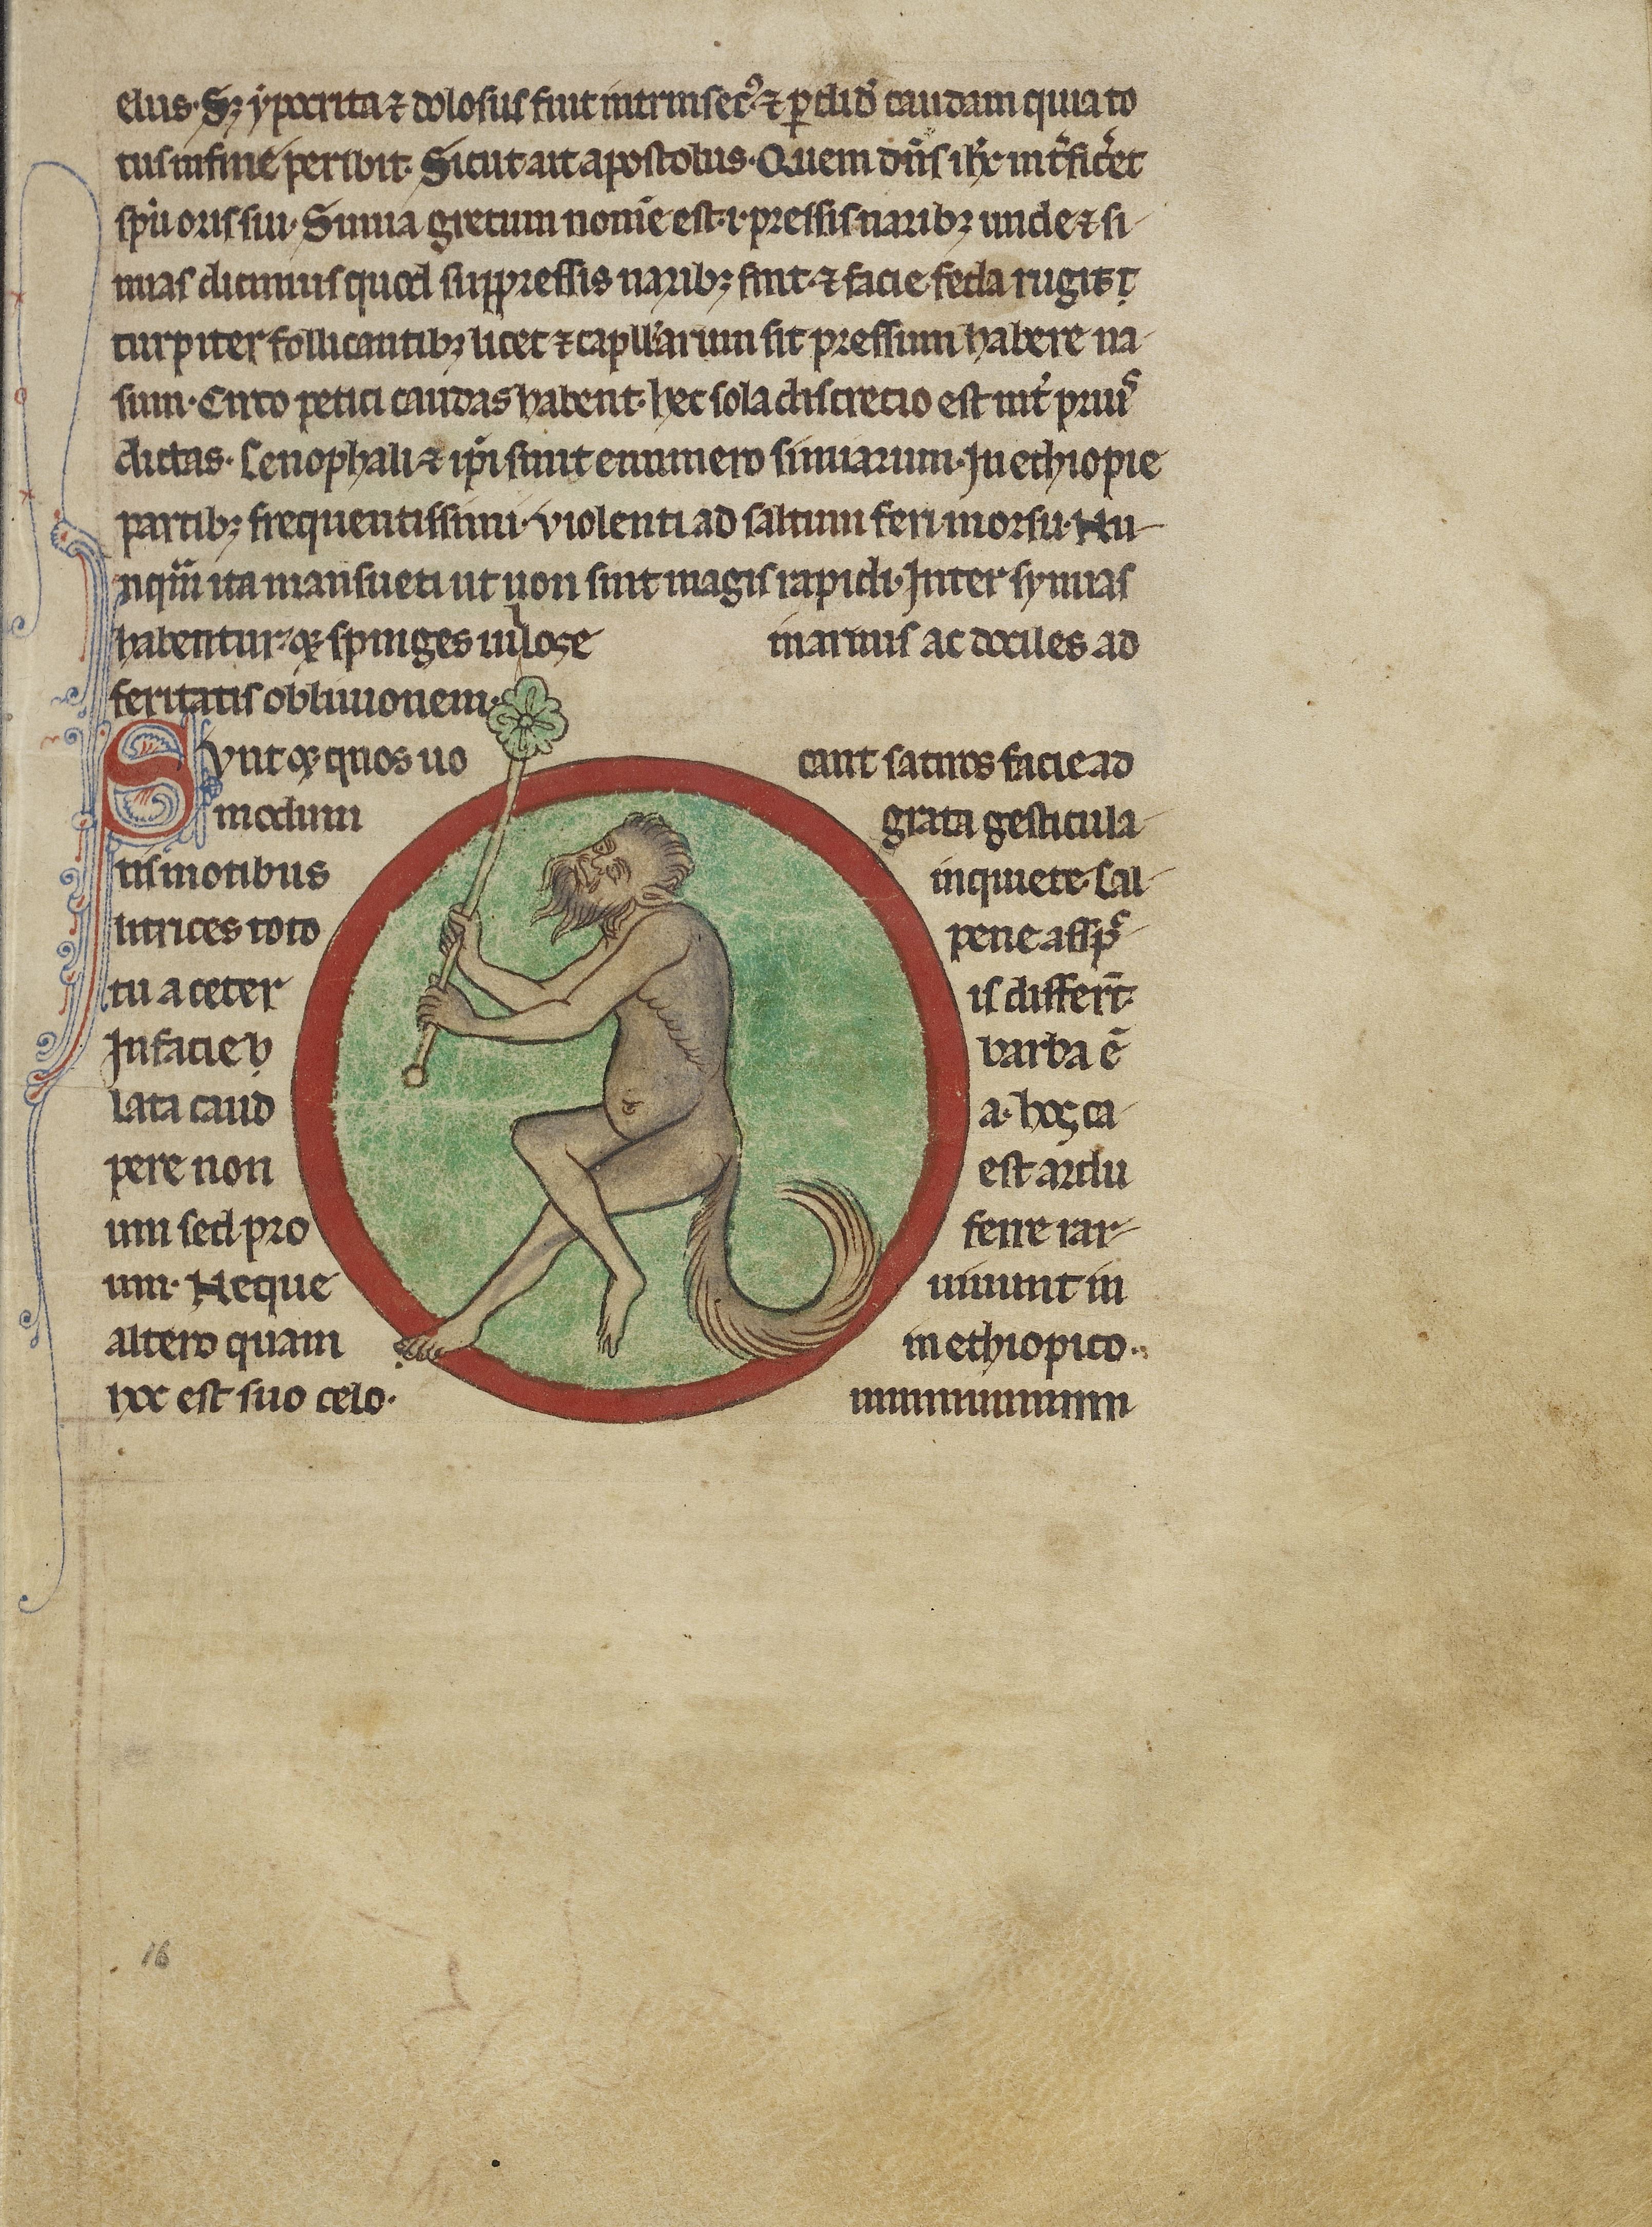 elus. Sꝫ ypocrita ⁊ dolosus fuit intrinsecꝰ ⁊ ꝑdid̾ caudam quia to
tus in fine peribit. Sicut ait apostolus. Quem dn̄s ih̄c int̾fic̾et
sp̄u oris sui. Simia gretum nom̄e est .i. pressis naribꝫ unde ⁊ si-
mias dicimus quod suppressis naribꝫ sint. ⁊ facie feda rugis
turpiter follicantibꝫ licet ⁊ capll̾arum sit pressum habere na-
sum. Circo petici caudas habent. hec sola discrecio est int̾ priuᷤ
dictas. Cenophali ⁊ ip̄i sunt e numero simiarum. In ethiopie
partibꝫ frequentissimi. violenti ad saltum feri morsu. Nu-
nqua᷑ ita mansueti ut non sint magis rapidi. Inter symias
habentur ⁊ spinges uillose in armis ac dociles ad
feritatis obliuionem.
Synt ⁊ quos uo cant satiros facie ad
modum grata gesticula-
tis motibus inquiete. Cal-
litrices toto pene aspc̄-
tu a ceter is differt̄.
In facie b barba ē
lata caud a. hos ca-
pere non est ardu
um sed pro ferre rar-
um. Neque uiuunt in
altero quam in ethiopico.
hoc est suo celo.
16